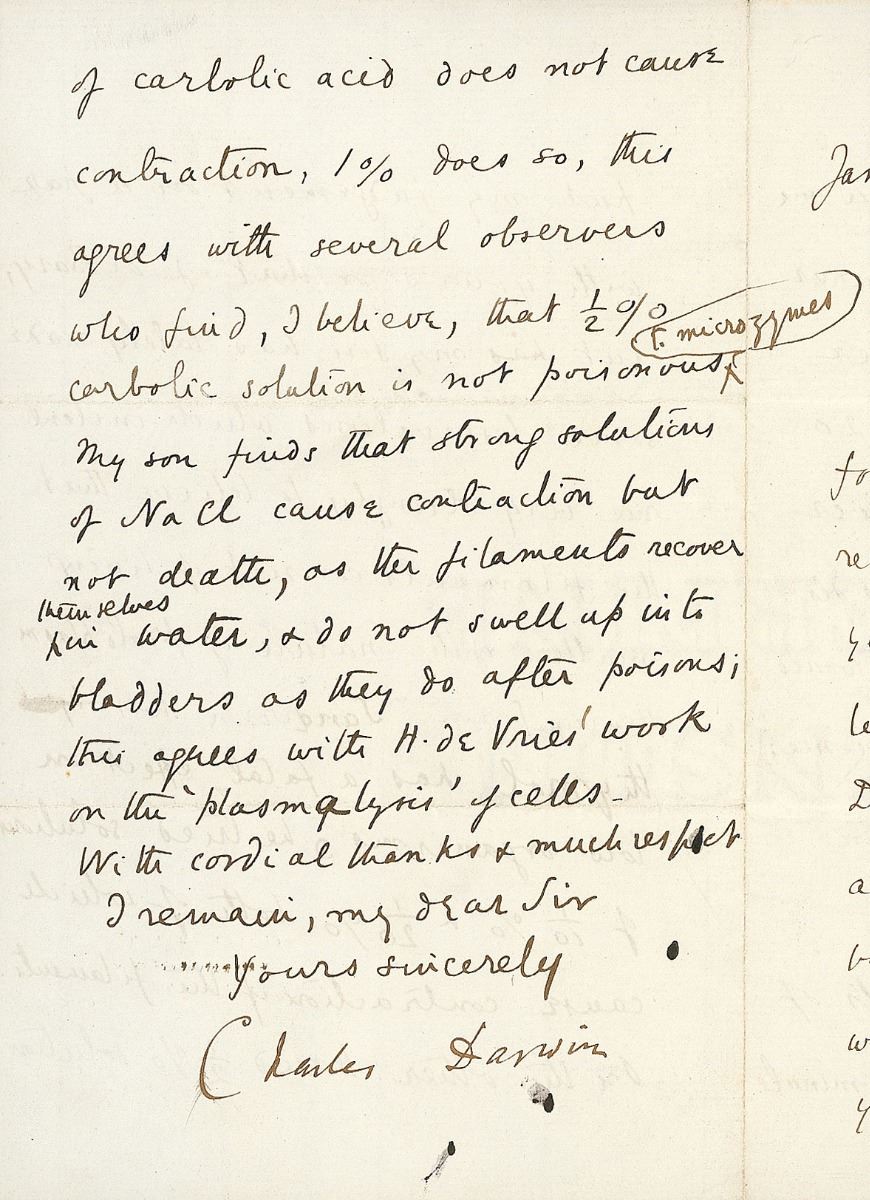 of carbolic acid does not cause
contraction, 1% does so, this
agrees with several observers
who find, I believe, that ½%
carbolic solution is not poisonous
to microzymes
My son finds that strong solutions
of NaCl cause contraction but
not death, as the filaments recover
themselves
in water, & do not swell up into
bladders as they do after poisons;
this agrees with H. de Vries' work
on the 'plasmolysis' of cells—
With cordial thanks & much respect
I remain, my dear Sir
Yours sincerely
Charles Darwin
Jan
fo
re
y
le
D
a
b
w
y